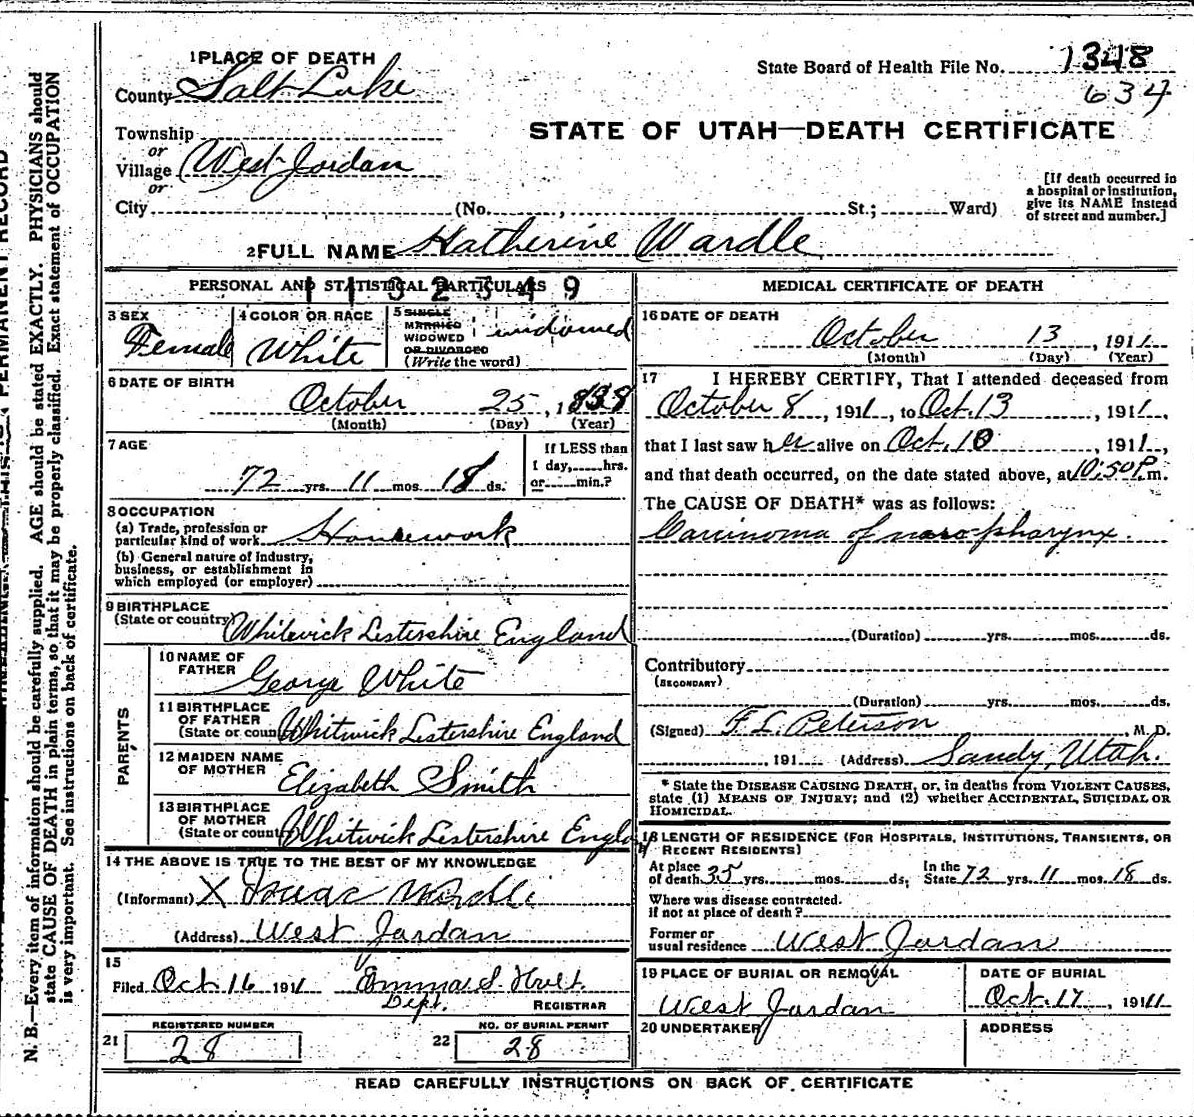 N. B.—Every item of information should be carefully supplied. AGE should be stated EXACTLY. PHYSICIANS should
state CAUSE OF DEATH in plain terms, so that it may be properly classified. Exact statement of OCCUPATION
is very important. See instructions on back of certificate.
PERMANENT RECORD
1 PLACE OF DEATH
County Salt Lake
Township
or
Village West Jordan
or
City (No. , St.; Ward)
State Board of Health File No. 1348
634
STATE OF UTAH—DEATH CERTIFICATE
[If death occurred in
a hospital or institution,
give its NAME instead
of street and number.]
2 FULL NAME Katherine Wardle
PERSONAL AND STATISTICAL PARTICULARS
1132349
3 SEX
Female
4 COLOR OR RACE
White
5 SINGLE
MARRIED
WIDOWED
OR DIVORCED
(Write the word)
widowed
6 DATE OF BIRTH
October 25, 1838
(Month) (Day) (Year)
7 AGE
72 yrs. 11 mos. 18 ds.
If LESS than
1 day, hrs.
or min.?
8 OCCUPATION
(a) Trade, profession or
particular kind of work Housework
(b) General nature of industry,
business, or establishment in
which employed (or employer)
9 BIRTHPLACE
(State or country) Whitwick Lestershire England
PARENTS
10 NAME OF
FATHER George White
11 BIRTHPLACE
OF FATHER
(State or country) Whitwick Lestershire England
12 MAIDEN NAME
OF MOTHER Elizabeth Smith
13 BIRTHPLACE
OF MOTHER
(State or country) Whitwick Lestershire England
14 THE ABOVE IS TRUE TO THE BEST OF MY KNOWLEDGE
(Informant) X Isaac Wardle
(Address) West Jordan
15
Filed Oct. 16 1911 Emma S. Holt
Dept. REGISTRAR
21 REGISTERED NUMBER
28
22 NO. OF BURIAL PERMIT
28
MEDICAL CERTIFICATE OF DEATH
16 DATE OF DEATH
October 13, 1911
(Month) (Day) (Year)
17 I HEREBY CERTIFY, That I attended deceased from
October 8, 1911, to Oct. 13, 1911,
that I last saw her alive on Oct. 10, 1911,
and that death occurred, on the date stated above, at 10:50 P.m.
The CAUSE OF DEATH* was as follows:
Carcinoma of naso-pharynx.
(Duration) yrs. mos. ds.
Contributory
(SECONDARY)
(Duration) yrs. mos. ds.
(Signed) F. L. Peterson, M. D.
, 191 (Address) Sandy, Utah.
* State the DISEASE CAUSING DEATH, or, in deaths from VIOLENT CAUSES,
state (1) MEANS OF INJURY; and (2) whether ACCIDENTAL, SUICIDAL OR
HOMICIDAL.
18 LENGTH OF RESIDENCE (FOR HOSPITALS, INSTITUTIONS, TRANSIENTS, OR
RECENT RESIDENTS)
At place
of death 35 yrs. mos. ds.
In the
State 72 yrs. 11 mos. 18 ds.
Where was disease contracted.
if not at place of death?
Former or
usual residence West Jordan
19 PLACE OF BURIAL OR REMOVAL
West Jordan
DATE OF BURIAL
Oct. 17, 1911
20 UNDERTAKER
ADDRESS
READ CAREFULLY INSTRUCTIONS ON BACK OF CERTIFICATE